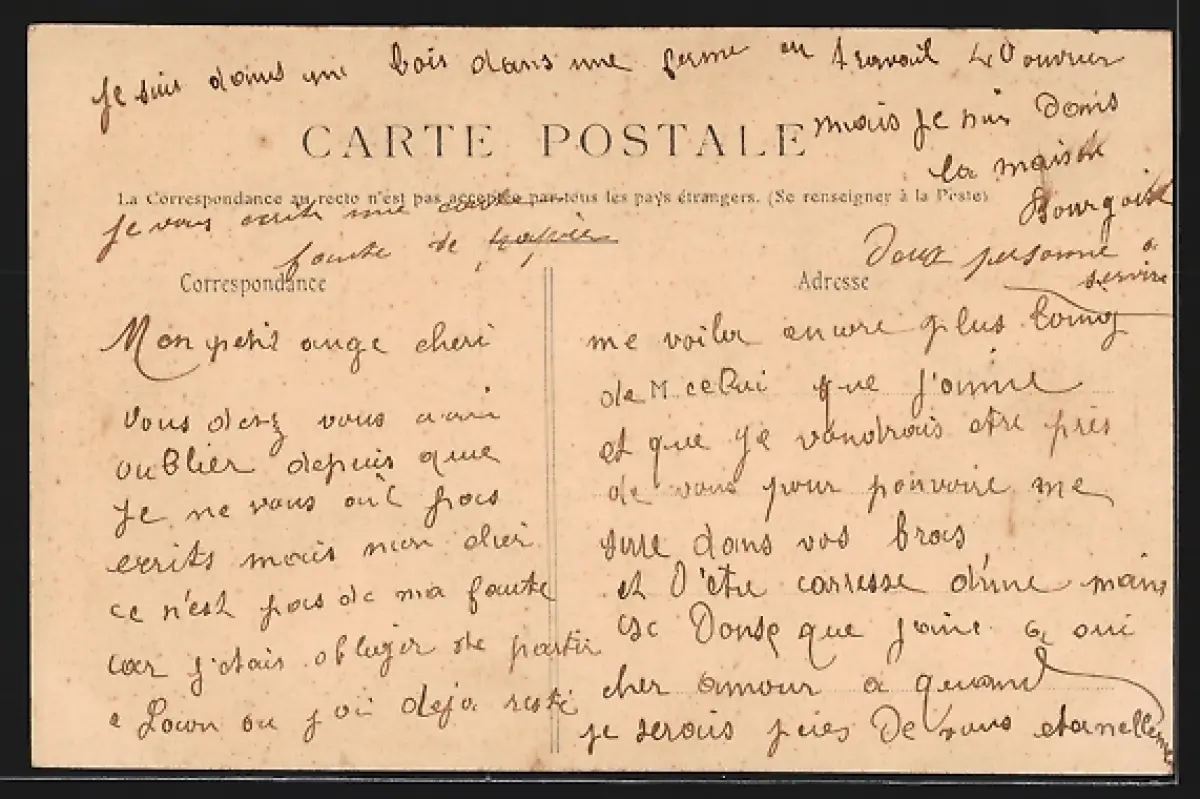 je suis dans un bois dans une ferme ou travail 40 ouvrier
mais je suis dans
la maison
Bourgois
Douz personne a
servire
CARTE POSTALE
La Correspondance au recto n'est pas acceptée par tous les pays étrangers. (Se renseigner à la Poste)
je vous ecrits une carte
faute de papier
Correspondance
Adresse
Mon petit ange cheri
Vous devez vous avoir
oublier depuis que
je ne vous ait pas
ecrits mais mon cher
ce n'est pas de ma faute
car j'etais obliger de partir
a Laon ou j'ai deja resté
me voila encore plus loing
de M. celui que j'aime
et que je voudrais etre près
de vous pour pouvoire me
dans vos bras
et d'etre carresse d'une mains
que j'aime oui
cher amour a quand
je serais près De vous eternelleme